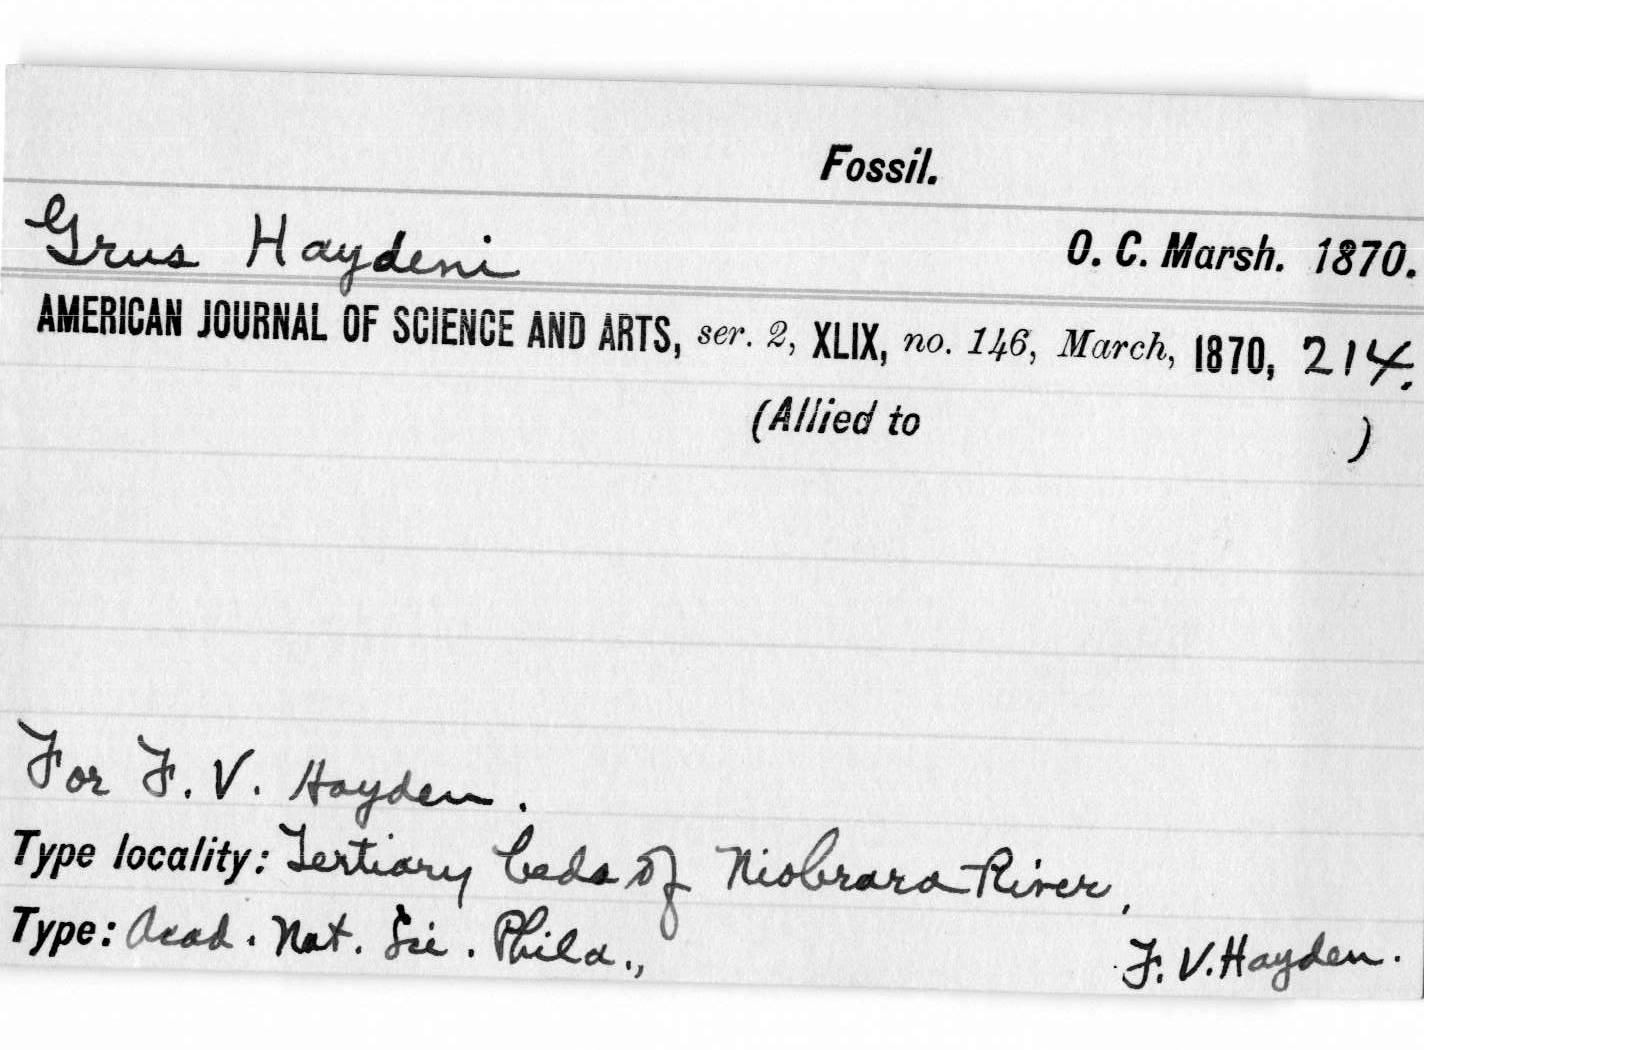 Fossil.
Grus Haydeni O. C. Marsh. 1870.
AMERICAN JOURNAL OF SCIENCE AND ARTS, ser. 2, XLIX, no. 146, March, 1870, 214.
(Allied to )
For F. V. Hayden.
Type locality: Tertiary beds of Niobrara River,
Type: Acad. Nat. Sci. Phila., F. V. Hayden.